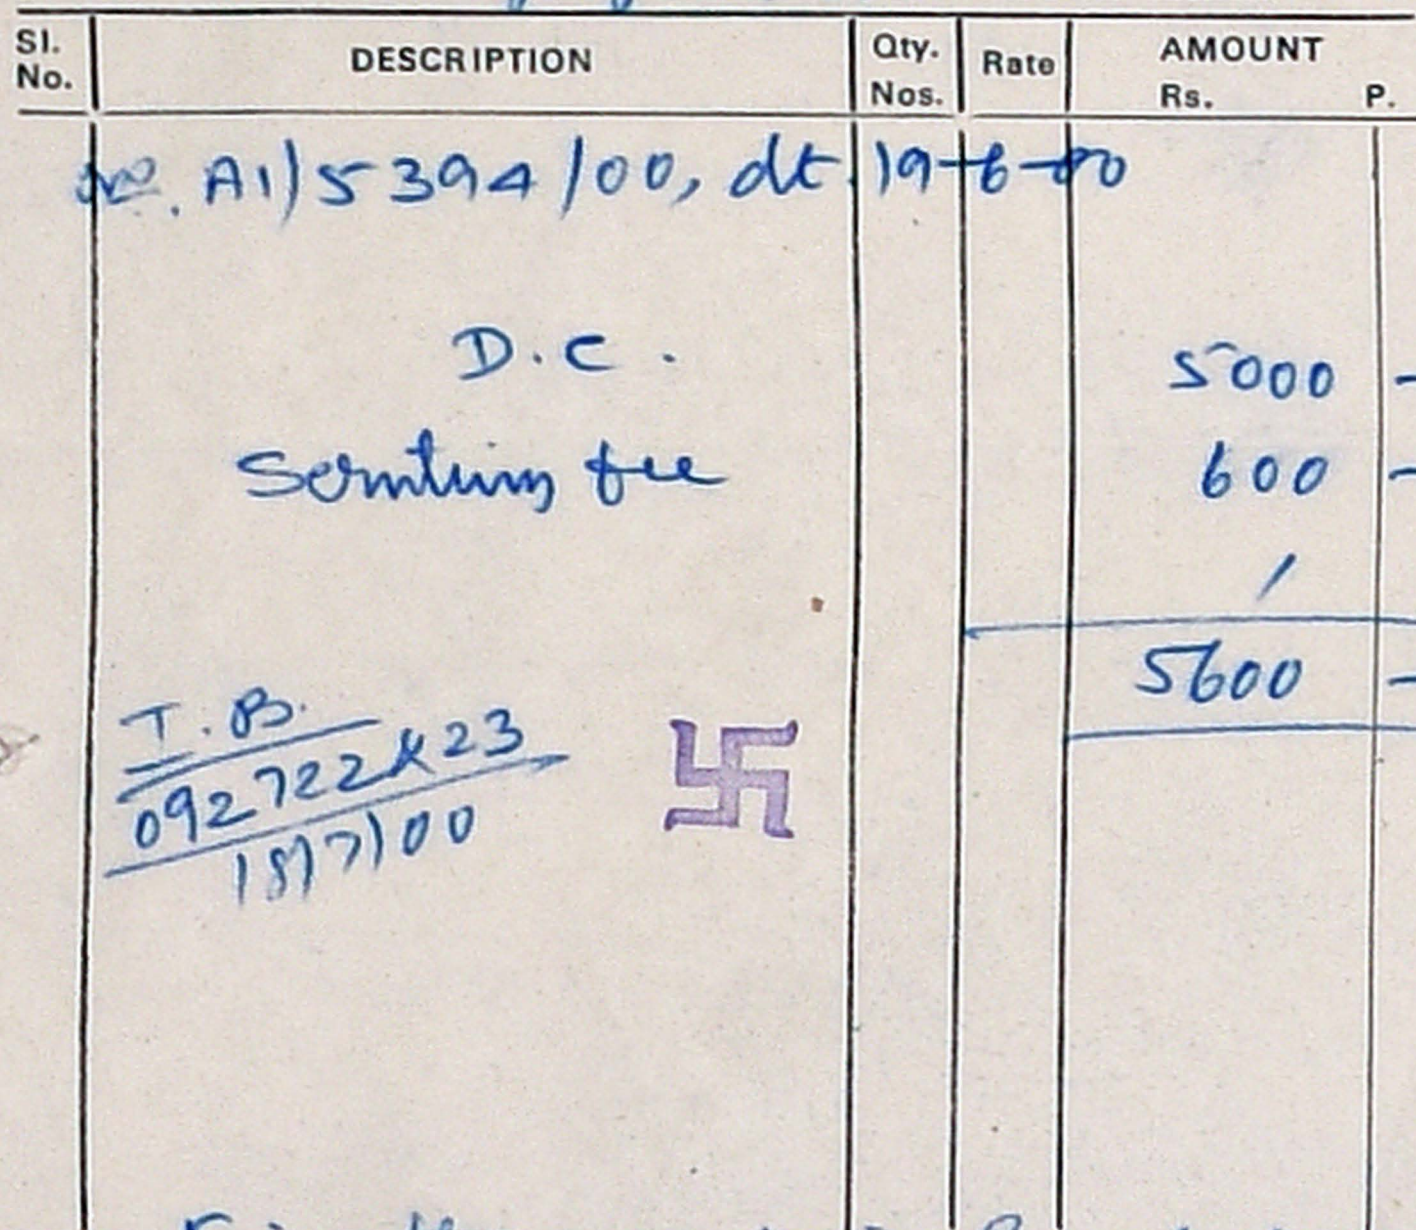 Sl. No. DESCRIPTION Qty. Nos. Rate AMOUNT Rs. P.
No. A1/5394/00, dt. 19-6-00
D.C. 5000 -
Scrutiny fee 600 -
5600 -
T.B.
092722 & 23
18/7/00